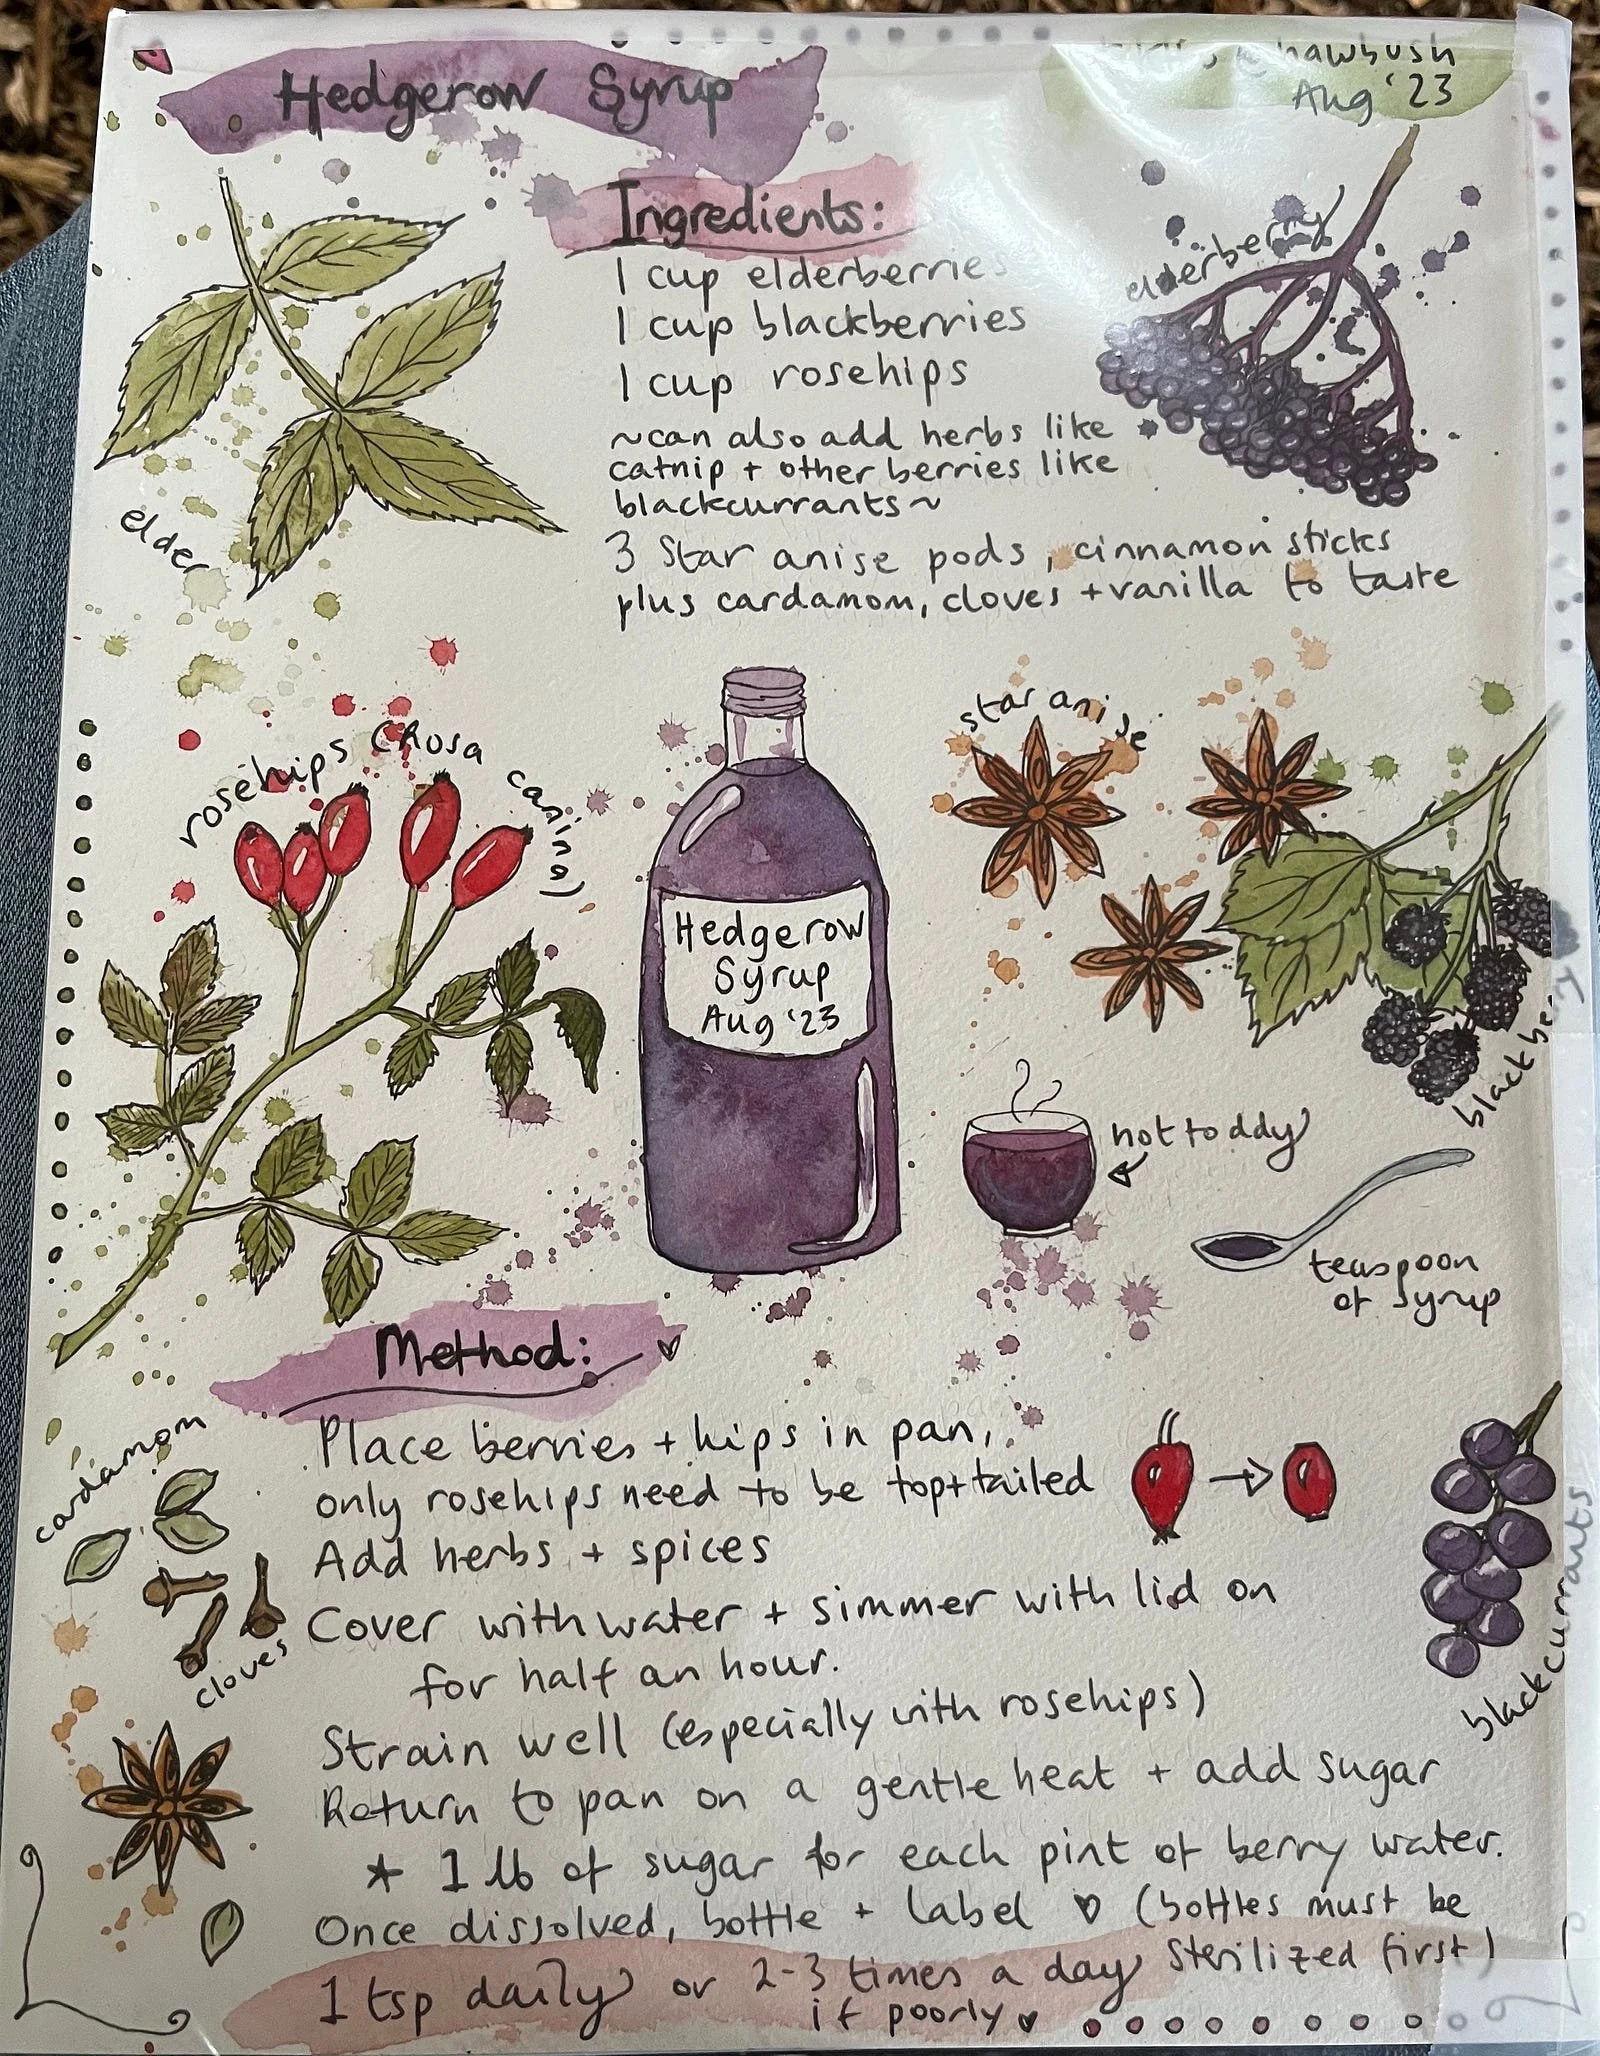 Hedgerow Syrup
@ hawbush
Aug '23
Ingredients:
1 cup elderberries
1 cup blackberries
1 cup rosehips
~can also add herbs like
catnip + other berries like
blackcurrants~
3 Star anise pods, cinnamon sticks
plus cardamom, cloves + vanilla to taste
elderberry
elder
rosehips (Rosa canina)
star anise
Hedgerow
Syrup
Aug '23
blackberry
hot toddy
teaspoon
of syrup
Method:
Place berries + hips in pan,
only rosehips need to be top+tailed
Add herbs + spices
Cover with water + simmer with lid on
for half an hour.
Strain well (especially with rosehips)
Return to pan on a gentle heat + add sugar
* 1 lb of sugar for each pint of berry water.
Once dissolved, bottle + label ♡ (bottles must be
sterilized first)
1 tsp daily or 2-3 times a day
if poorly ♥
cardamom
cloves
blackcurrants